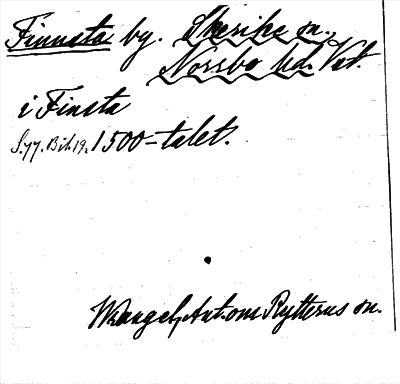 Finnsta by. Skerike sn.,
Norrbo hd. Vst.
i Finsta
S. 77. Bih. 19. 1500-talet.
Wrangel, Ant. om Rytterns sn.